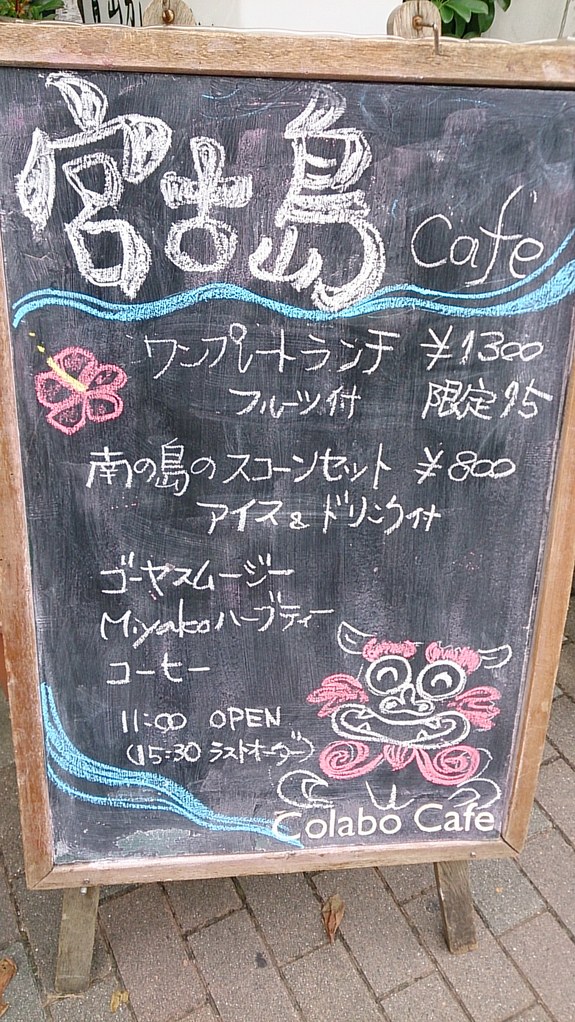 宮古島 Cafe
ワンプレートランチ ¥1300
フルーツ付 限定15
南の島のスコーンセット ¥800
アイス&ドリンク付
ゴーヤスムージー
Miyakoハーブティー
コーヒー
11:00 OPEN
(15:30 ラストオーダー)
Colabo Cafe